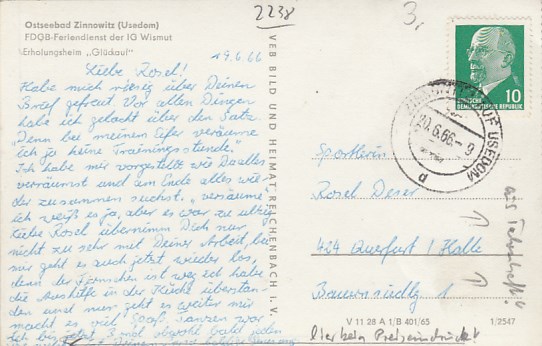 2238
3,
Ostseebad Zinnowitz (Usedom)
FDGB-Feriendienst der IG Wismut
Erholungsheim „Glückauf"
19.6.66
Liebe Rosel!
Habe mich riesig über Deinen
Brief gefreut. Vor allen Dingen
habe ich gelacht über den Satz.
"Denn bei meinem Eifer versäume
ich ja keine Trainingsstunde."
Ich habe mir vorgestellt wie Du alles
versäumst und am Ende alles wie-
der zusammen suchst. „versäume",
ich weiß es ja, aber es war zu ulkig
Liebe Rosel übernimm Dich nur
nicht zu sehr mit Deiner Arbeit, bei
uns geht es auch jetzt wieder los,
denn der ist weg. Ich habe
die Aushilfe in der Küche überstan-
den und nun geht es weiter mir
macht es viel Spaß. Tanzen war
ich bis jetzt obwohl bald jeden
VEB BILD UND HEIMAT REICHENBACH I. V.
10
DEUTSCHE
DEMOKRATISCHE REPUBLIK
USEDOM
20.6.66-9
Sportlerin
Rosel Deser
424 Querfurt / Halle
Bauernsiedlg 1
V 11 28 A 1/B 401/65
1/2547